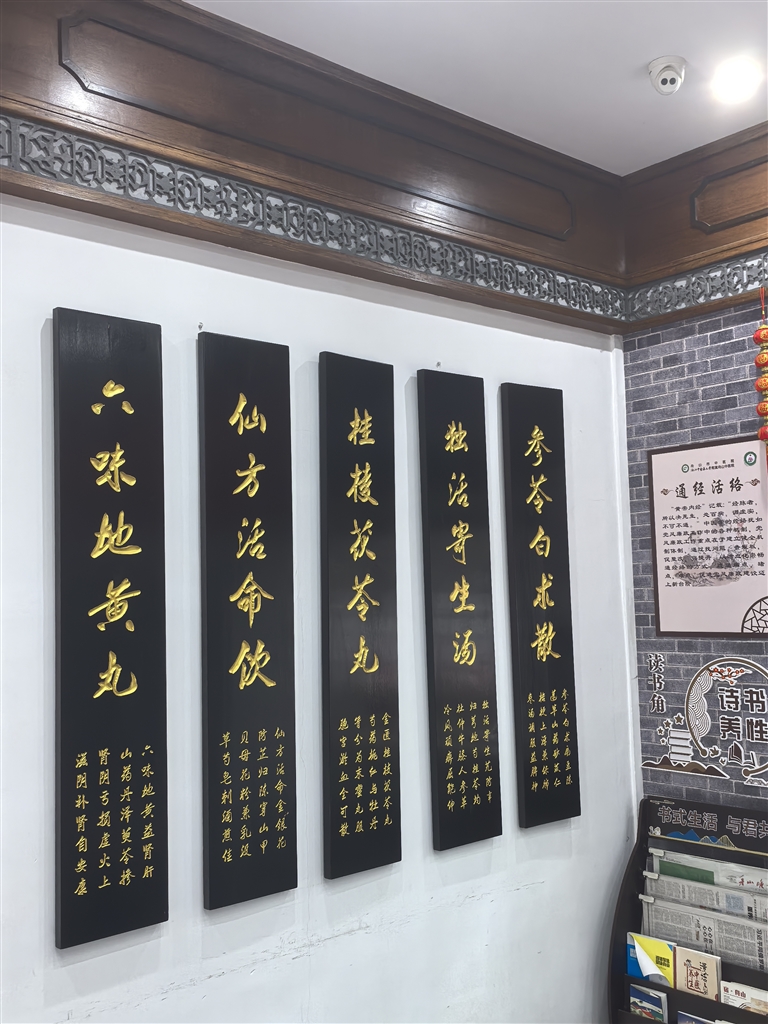 六味地黄丸
六味地黄益肾肝
山药丹泽萸苓掺
肾阴亏损虚火上
滋阴补肾自安康
仙方活命饮
仙方活命金银花
防芷归陈穿山甲
贝母花粉兼乳没
草芍皂刺酒煎佳
桂枝茯苓丸
金匮桂枝茯苓丸
芍药桃仁与牡丹
等分为末蜜丸服
胞宫瘀血全可散
独活寄生汤
独活寄生艽防辛
归芎地芍桂苓均
杜仲牛膝人参草
冷风顽痹屈能伸
参苓白术散
参苓白术扁豆陈
莲草山药砂苡仁
桔梗上浮兼保肺
枣汤调服益脾神
通经活络
"黄帝内经"记载"经脉者,
所以决死生,处百病,调虚实,
不可不通。"
上新台阶。
读书角
诗书
养性
书式生活 与君共